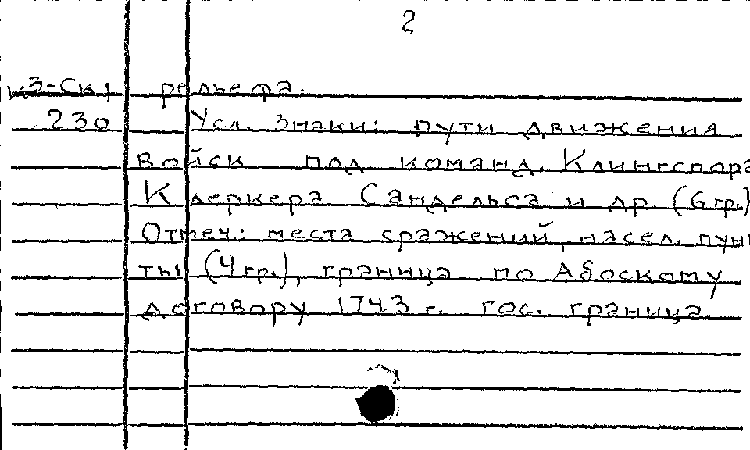 2
К3-Ск1 рельефа.
230 Усл. знаки: пути движения
войск под команд. Клингспора
Клеркера Сандельса и др. (6 гр.)
Отмеч.: места сражений, насел. пунк
ты (4 гр.), граница по Абоскому
договору 1743 г. гос. граница